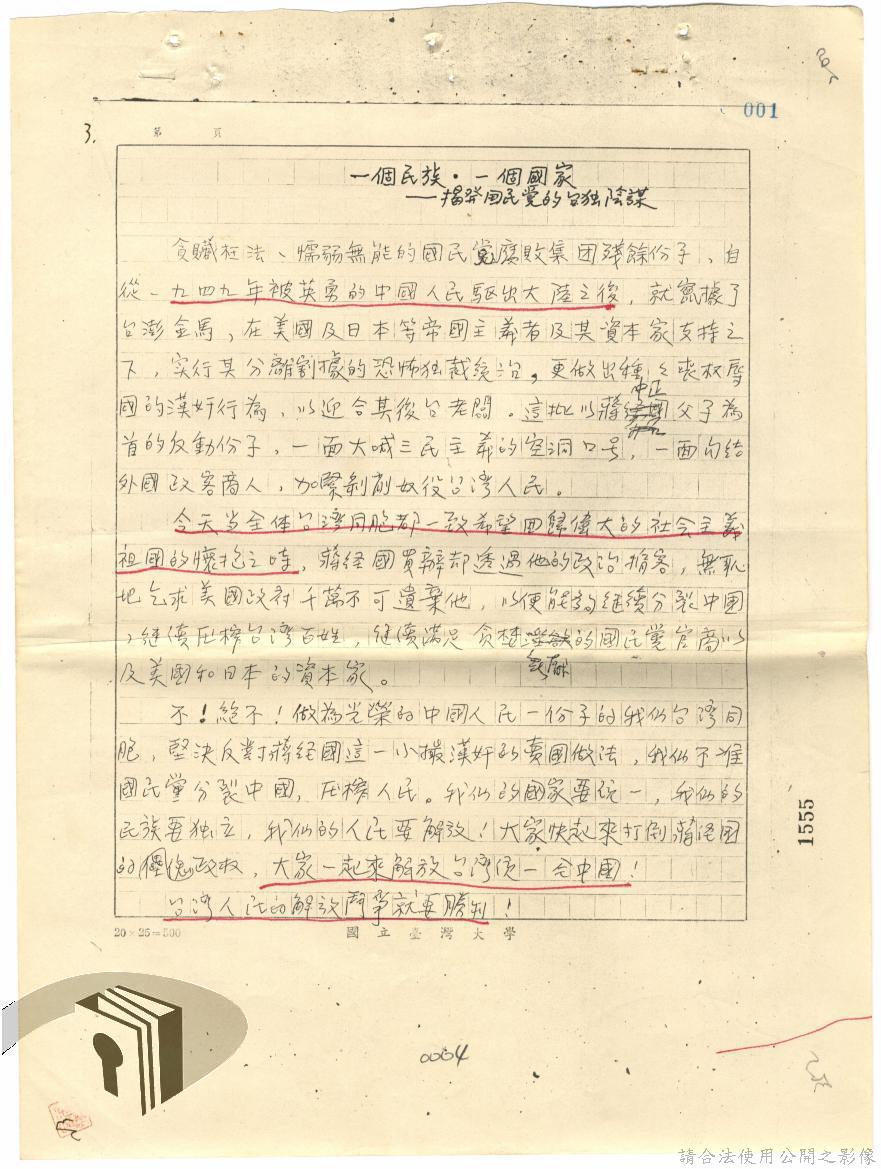 001
3.
第 頁
一個民族・一個國家
——揭發国民党的台独陰謀
貪贓枉法、懦弱無能的國民党腐敗集团残餘份子、自
從一九四九年被英勇的中國人民驅出大陸之後，就竄據了
台澎金馬，在美國及日本等帝國主義者及其資本家支持之
下，实行其分離割據的恐怖独裁统治，更做出種々喪权辱
國的漢奸行為，以迎合其後台老闆。這批以蔣中正父子為
首的反動份子，一面大喊三民主義的空洞口号，一面勾结
外國政客商人，加緊剝削奴役台湾人民。
今天当全体台湾同胞都一致希望回歸偉大的社会主義
祖國的懷抱之時，蔣经國買辦却透過他的政治掮客，無恥
地乞求美國政府千萬不可遺棄他，以便能夠继續分裂中國
，继續压榨台湾百姓，继續满足貪婪的國民党官商以
及美國和日本的資本家。
不！絕不！做為光榮的中國人民一份子的我们台湾同
胞，堅決反對蔣经國這一小撮漢奸的賣國做法，我们不准
國民党分裂中國，压榨人民。我们的國家要统一，我们的
民族要独立，我们的人民要解放！大家快起來打倒蔣经国
的傀儡政权，大家一起來解放台湾统一全中國！
台湾人民的解放鬥爭就要勝利！
20×25=500
國立臺灣大學
1555
0004
請合法使用公開之影像